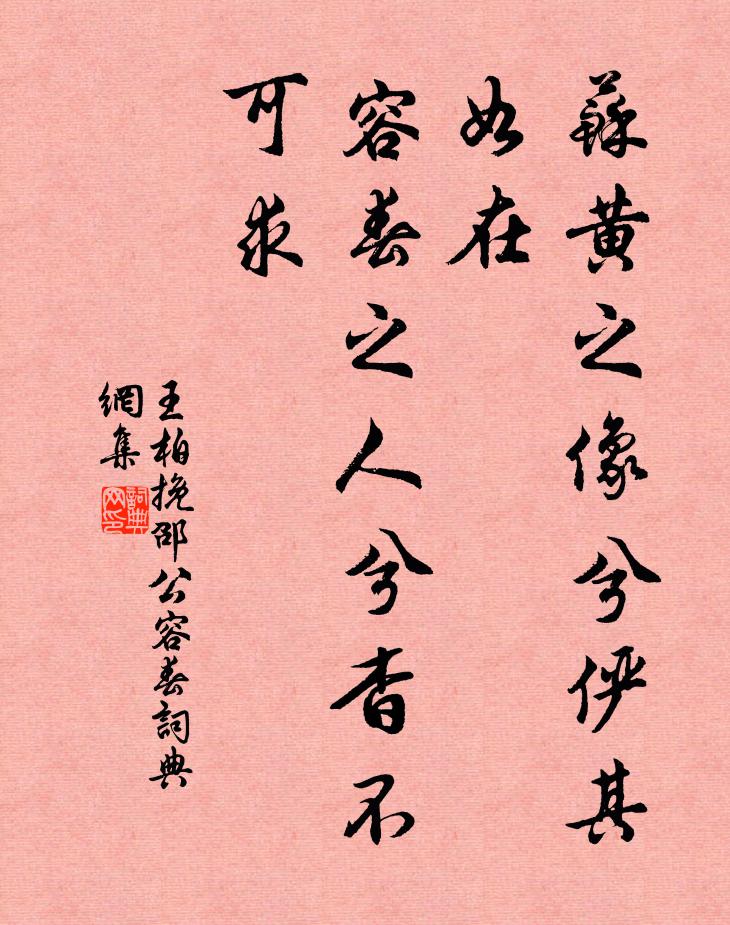 蘇黄之像兮俨其
如在
容春之人兮杳不
可求
王柏挽邵公容春詞典
網集
詞典
网印